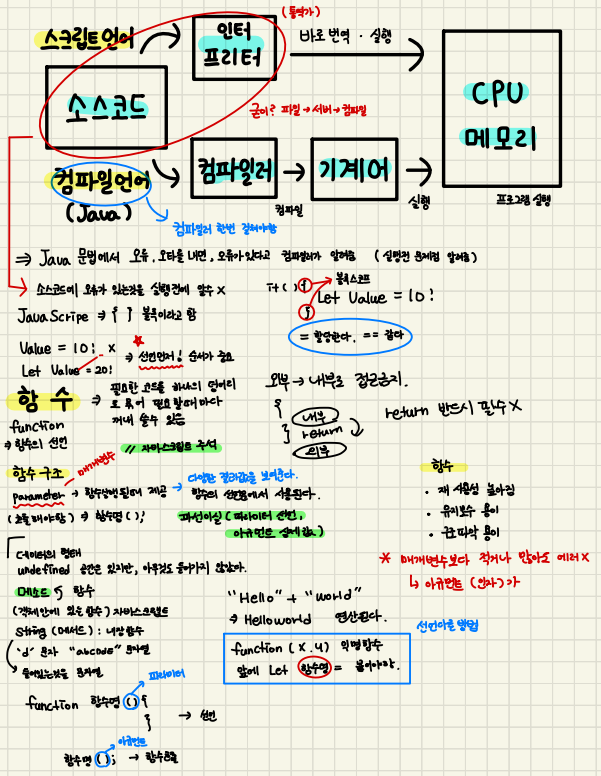 (통역가)
스크립트언어
인터
프리터
바로 번역 · 실행
소스코드
굳이? 파일 → 서버 → 컴파일
CPU
메모리
컴파일언어
(Java)
컴파일러
컴파일
기계어
실행
프로그램 실행
컴파일러 한번 걸쳐야함
⇒ Java 문법에서 오류, 오타를 내면, 오류가 있다고 컴파일러가 알려줌 (실행전 문제점 알려줌)
소스코드에 오류가 있는것을 실행전에 알수 X
JavaScripe ⇒ { } 블록이라고 함
{
블록스코프
Let Value = 10!
}
= 할당한다. == 같다
Value = 10! X
Let Value = 20!
⇒ 선언먼저! 순서가 중요
함수
⇒ 필요한 코드를 하나의 덩어리
로 묶어 필요할때마다
꺼내 쓸수 있음
function
⇒ 함수의 선언
// 자바스크립트 주석
외부 → 내부로 접근금지.
{
내부
} return
외부
return 반드시 필수 X
함수구조
매개변수
parameter → 함수실행될때 제공
→ 다양한 결과값을 보여준다.
함수의 선언문에서 사용된다.
(호출해야함) ⇒ 함수명();
함수
· 재사용성 높아짐
· 유지보수 용이
· 구조파악 용이
* 매개변수보다 적거나 많아도 에러 X
↳ 아규먼트 (인자)가
데이터의 형태
undefined 공간은 있지만, 아무것도 들어가지 않았다.
메소드 함수
(객체안에 있는 함수) 자바스크립트
String (메서드) : 내장함수
'd' 문자 "abcode" 문자열
들어있는것을 문자열
"Hello" + "world"
⇒ Helloworld 연산된다.
선언다른 방법
function (x.y) 익명함수
앞에 Let 함수명 = 붙여야함.
파라미터
function 함수명 () {
}
→ 선언
아규먼트
함수명 (); → 함수호출